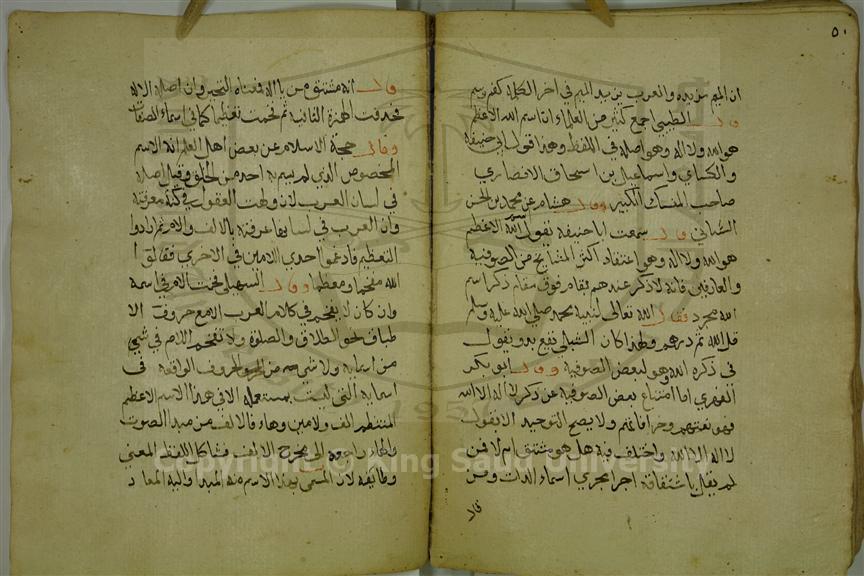 ٥٠
ان الميم مزيده والعرب تزيد الميم في اخر الكلمة كفم وسم
قال الطيبي اجمع كثير من العلماء ان اسم الله الاعظم
هو الله ولا اله وهو اصله في اللفظ وهذا قول ابي حنيفه
والكسائي واسماعيل بن اسحاق الانصاري
صاحب المنسك الكبير وقال هشام عن محمد بن الحسن
الشيباني قال سمعت ابا حنيفه يقول اسم الله الاعظم
هو الله ولا اله وهو اعتقاد اكثر المشايخ من الصوفيه
والعارفين فانه لا ذكر عندهم بمقام فوق مقام ذكر اسم
الله مجرد فقال الله تعالى لنبيه محمد صلى الله عليه وسلم
قل الله ثم ذرهم ولهذا كان الشبلي يقول
في ذكره الله وهو لبعض الصوفية وقال ابو بكر
الفهري اما امتناع بعض الصوفيه عن ذكر لا اله الا الله
فهو ولا يصح التوحيد الا بقول
لا اله الا الله واختلف فيه هل هو مشتق ام لا فمن
لم يقل باشتقاقه اجرا مجري اسماء الذات ومن
قال
قال انه مشتق من فمعناه التحير وان اصله الاله
فحذفت الهمزة الثانيه ثم فخمت تعظيما كما في اسماء الصفات
وقال حجة الاسلام عن بعض اهل العلم انه الاسم
المخصوص الذي لم يسم به احد من الخلق وقيل اصله
في لسان العرب لاه وولهت العقول في كنه معرفته
وان العرب في لسانها عرفته بالالف واللام ثم ارادوا
التعظيم فادغموا احدي اللامين في الاخري فقالوا
الله مفخما ومعظما وقال السهيلي فخمت اللام في اسمه
وان كان لا يفخم في كلام العرب الا مع حروف الا
طباق نحو الطلاق والصلوة ولا تفخم اللام في شيئ
من اسمايه ولا شيء من الحروف الواقعه في
اسمايه التي ليست بمستعمله الا في هذا الاسم الاعظم
المنتظم الف ولامين وهاء فالالف من مبدا الصوت
والهاء راجعه الى مخرج الالف فشاكل اللفظ المعني
وطابقه لان المسمى بهذا الاسم منه المبدا واليه المعاد
Copyright © King Saud University
1957